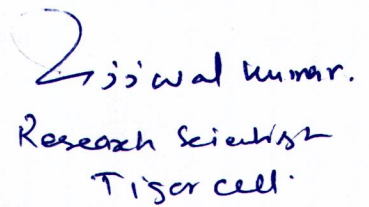 Ujjwal Kumar.
Research Scientist
Tiger cell.